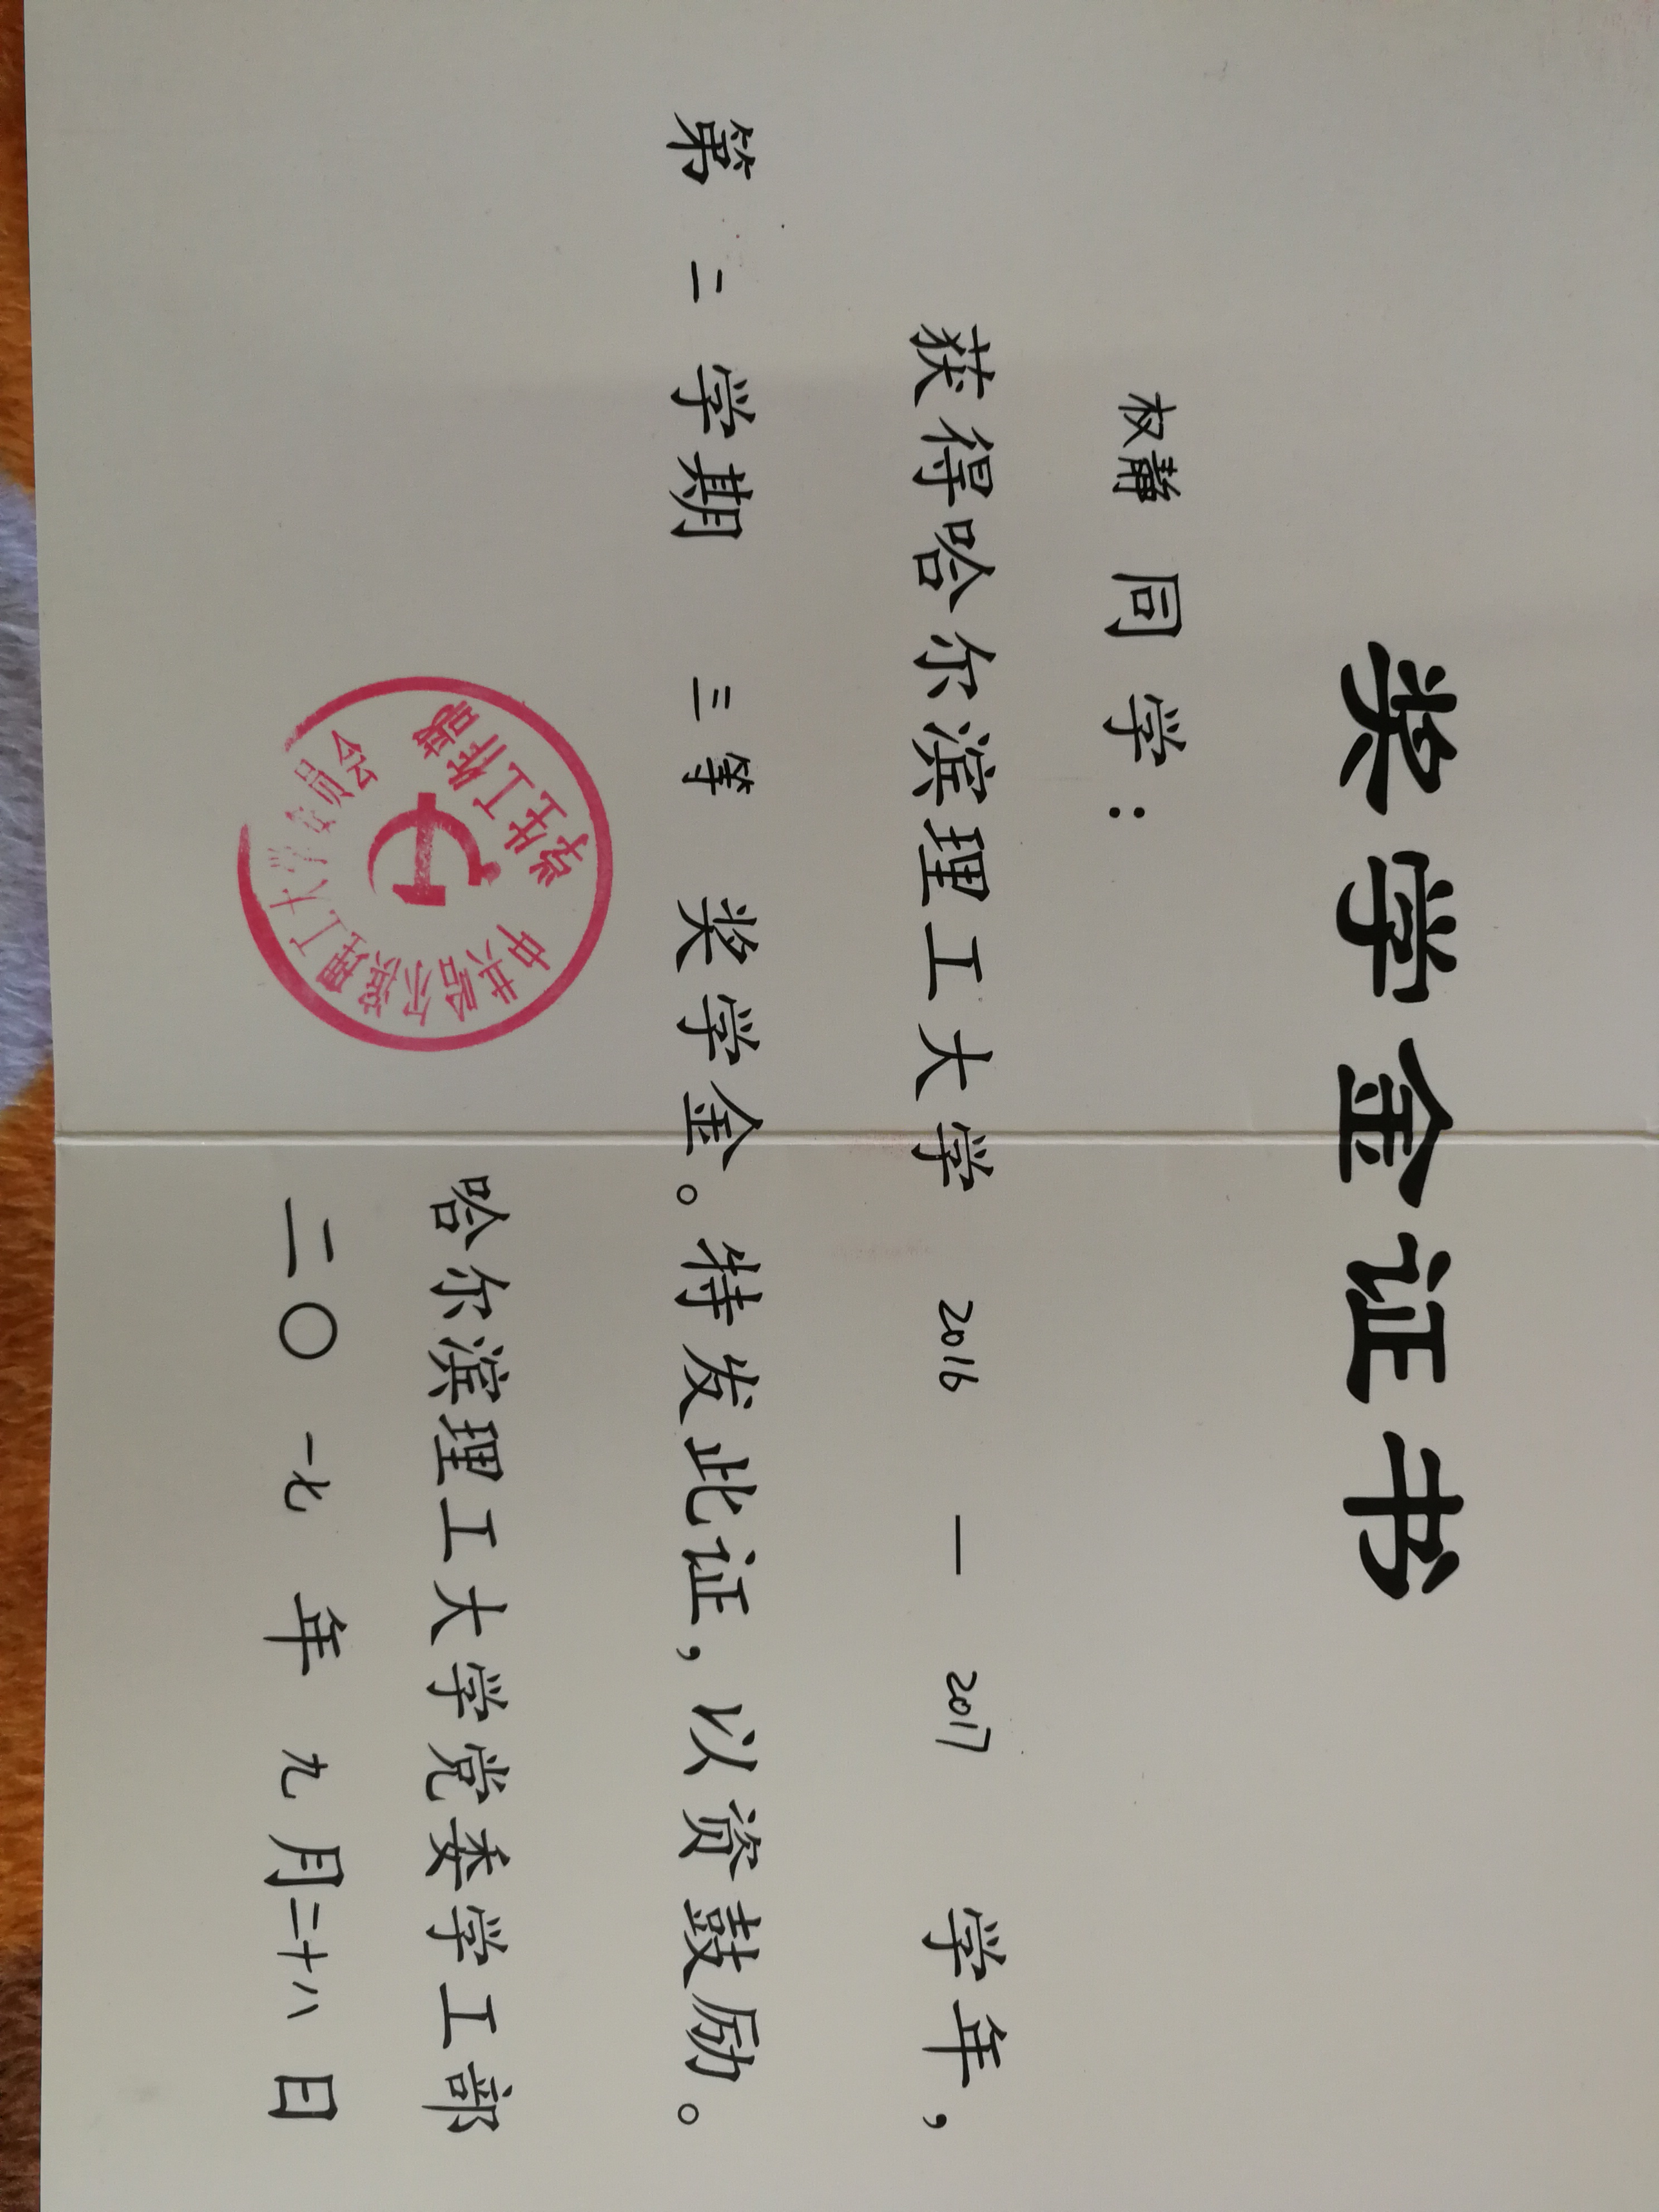 奖学金证书
权静 同学：
获得哈尔滨理工大学 2016 — 2017 学年，
第 二 学期 三等 奖学金。特发此证，以资鼓励。
哈尔滨理工大学党委学工部
二〇一七年九月二十八日
中共哈尔滨理工大学委员会
学生工作部